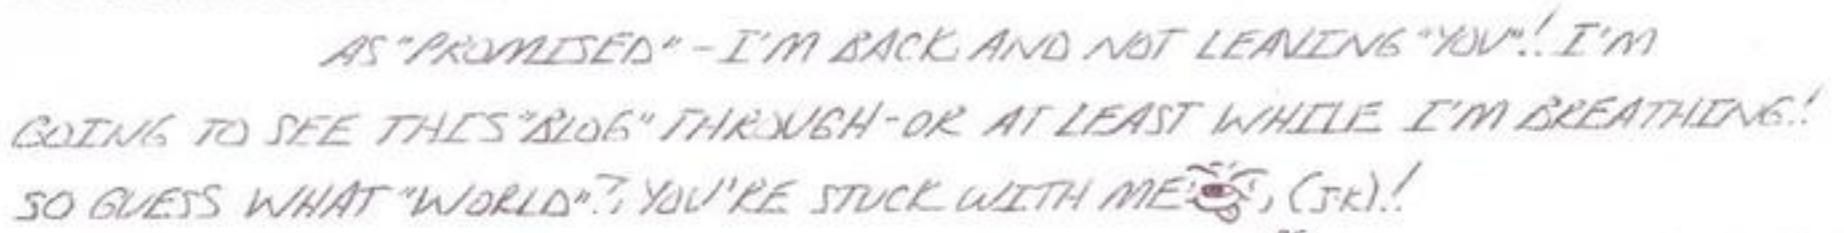 AS "PROMISED" - I'M BACK AND NOT LEAVING "YOU"! I'M
GOING TO SEE THIS "BLOG" THROUGH - OR AT LEAST WHILE I'M BREATHING!
SO GUESS WHAT "WORLD"?, YOU'RE STUCK WITH ME, (J.K)!